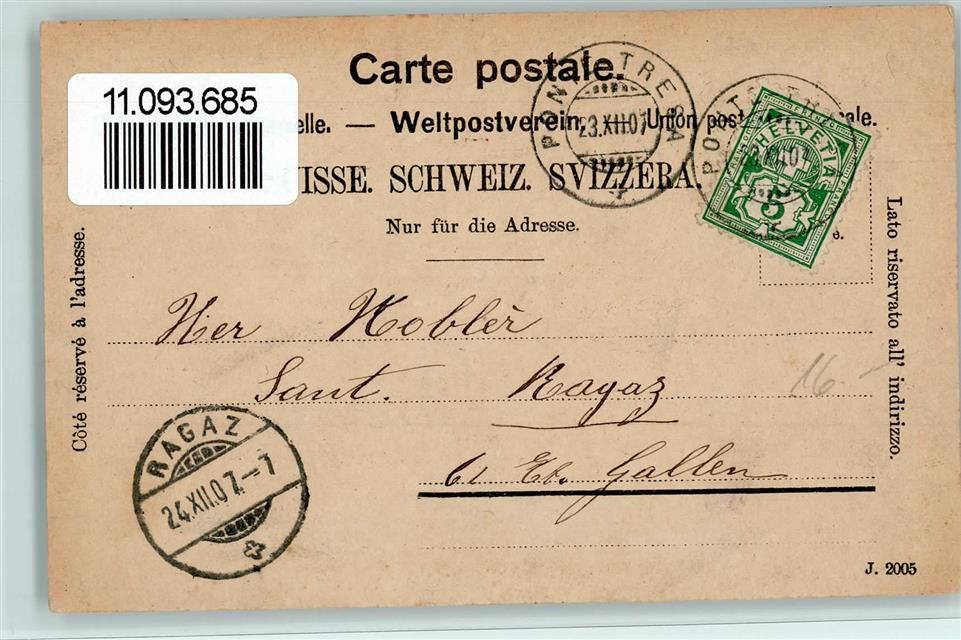 Carte postale.
11.093.685
elle. — Weltpostverein. — Union post ale.
ISSE. SCHWEIZ. SVIZZERA.
Nur für die Adresse.
PONTE TRESA
23.XII.07
HELVETIA
5
e.
Côté réservé à l'adresse.
Lato riservato all' indirizzo.
Herr Kobler
Sant. Ragaz
St. Gallen
16.-
RAGAZ
24.XII.07.-7
J. 2005